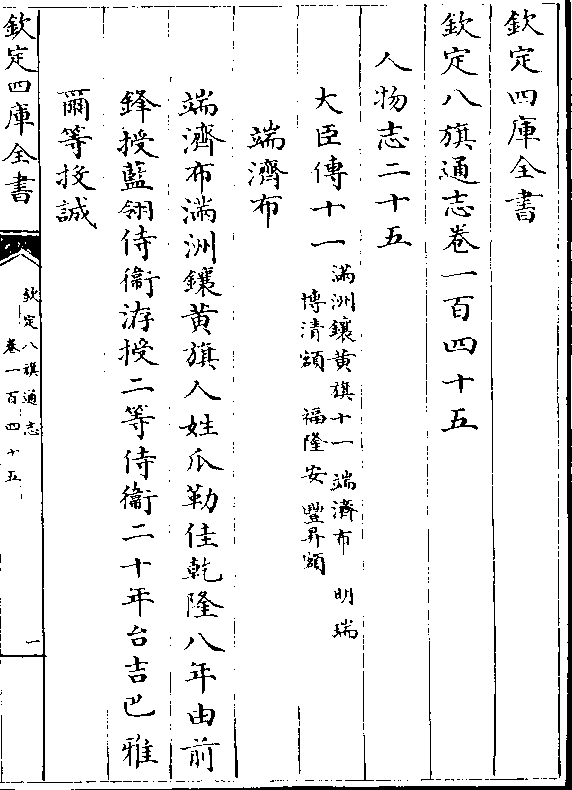 欽定四庫全書
欽定八旗通志卷一百四十五
人物志二十五
大臣傳十一
滿洲鑲黃旗十一 端濟布 明瑞
博清額 福隆安 豐昇額
端濟布
端濟布滿洲鑲黃旗人姓瓜勒佳乾隆八年由前
鋒授藍翎侍衞洊授二等侍衞二十年台吉巴雅
爾等投誠
欽定四庫全書
欽定八旗通志
卷一百四十五
一